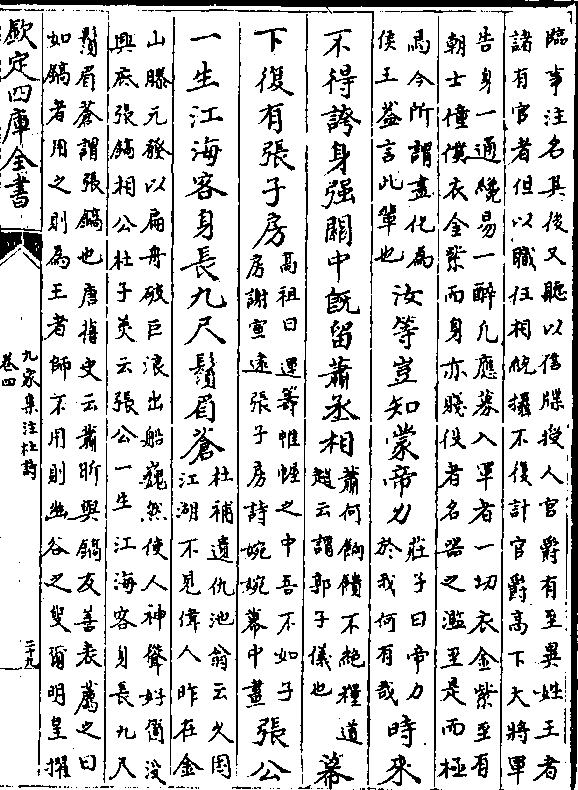 臨事注名其後又聽以信牒授人官爵有至異姓王者
諸有官者但以職任相統攝不復計官爵高下大將軍
告身一通纔易一醉凡應募入軍者一切衣金紫至有
朝士僮僕衣金紫而身亦賤伇者名器之濫至是而極
焉今所謂盡化為
侯王葢言此輩也
汝等豈知蒙帝力
莊子曰帝力
於我何有哉
時來
不得誇身强關中既留蕭丞相
蕭何餉饋不絶糧道
趙云謂郭子儀也
幕
下復有張子房
髙祖曰運籌帷幄之中吾不如子
房謝宣逺張子房詩婉婉幕中畫
張公
一生江海客身長九尺鬚眉蒼
杜補遺仇池翁云久困
江湖不見偉人昨在金
山滕元發以扁舟破巨浪出船巍然使人神聳好箇沒
興底張鎬相公杜子美云張公一生江海客身長九尺
鬚眉蒼謂張鎬也唐舊史云蕭昕與鎬友善表薦之曰
如鎬者用之則為王者師不用則幽谷之叟爾明皇擢
欽定四庫全書
九家集注杜詩
卷四
二十九